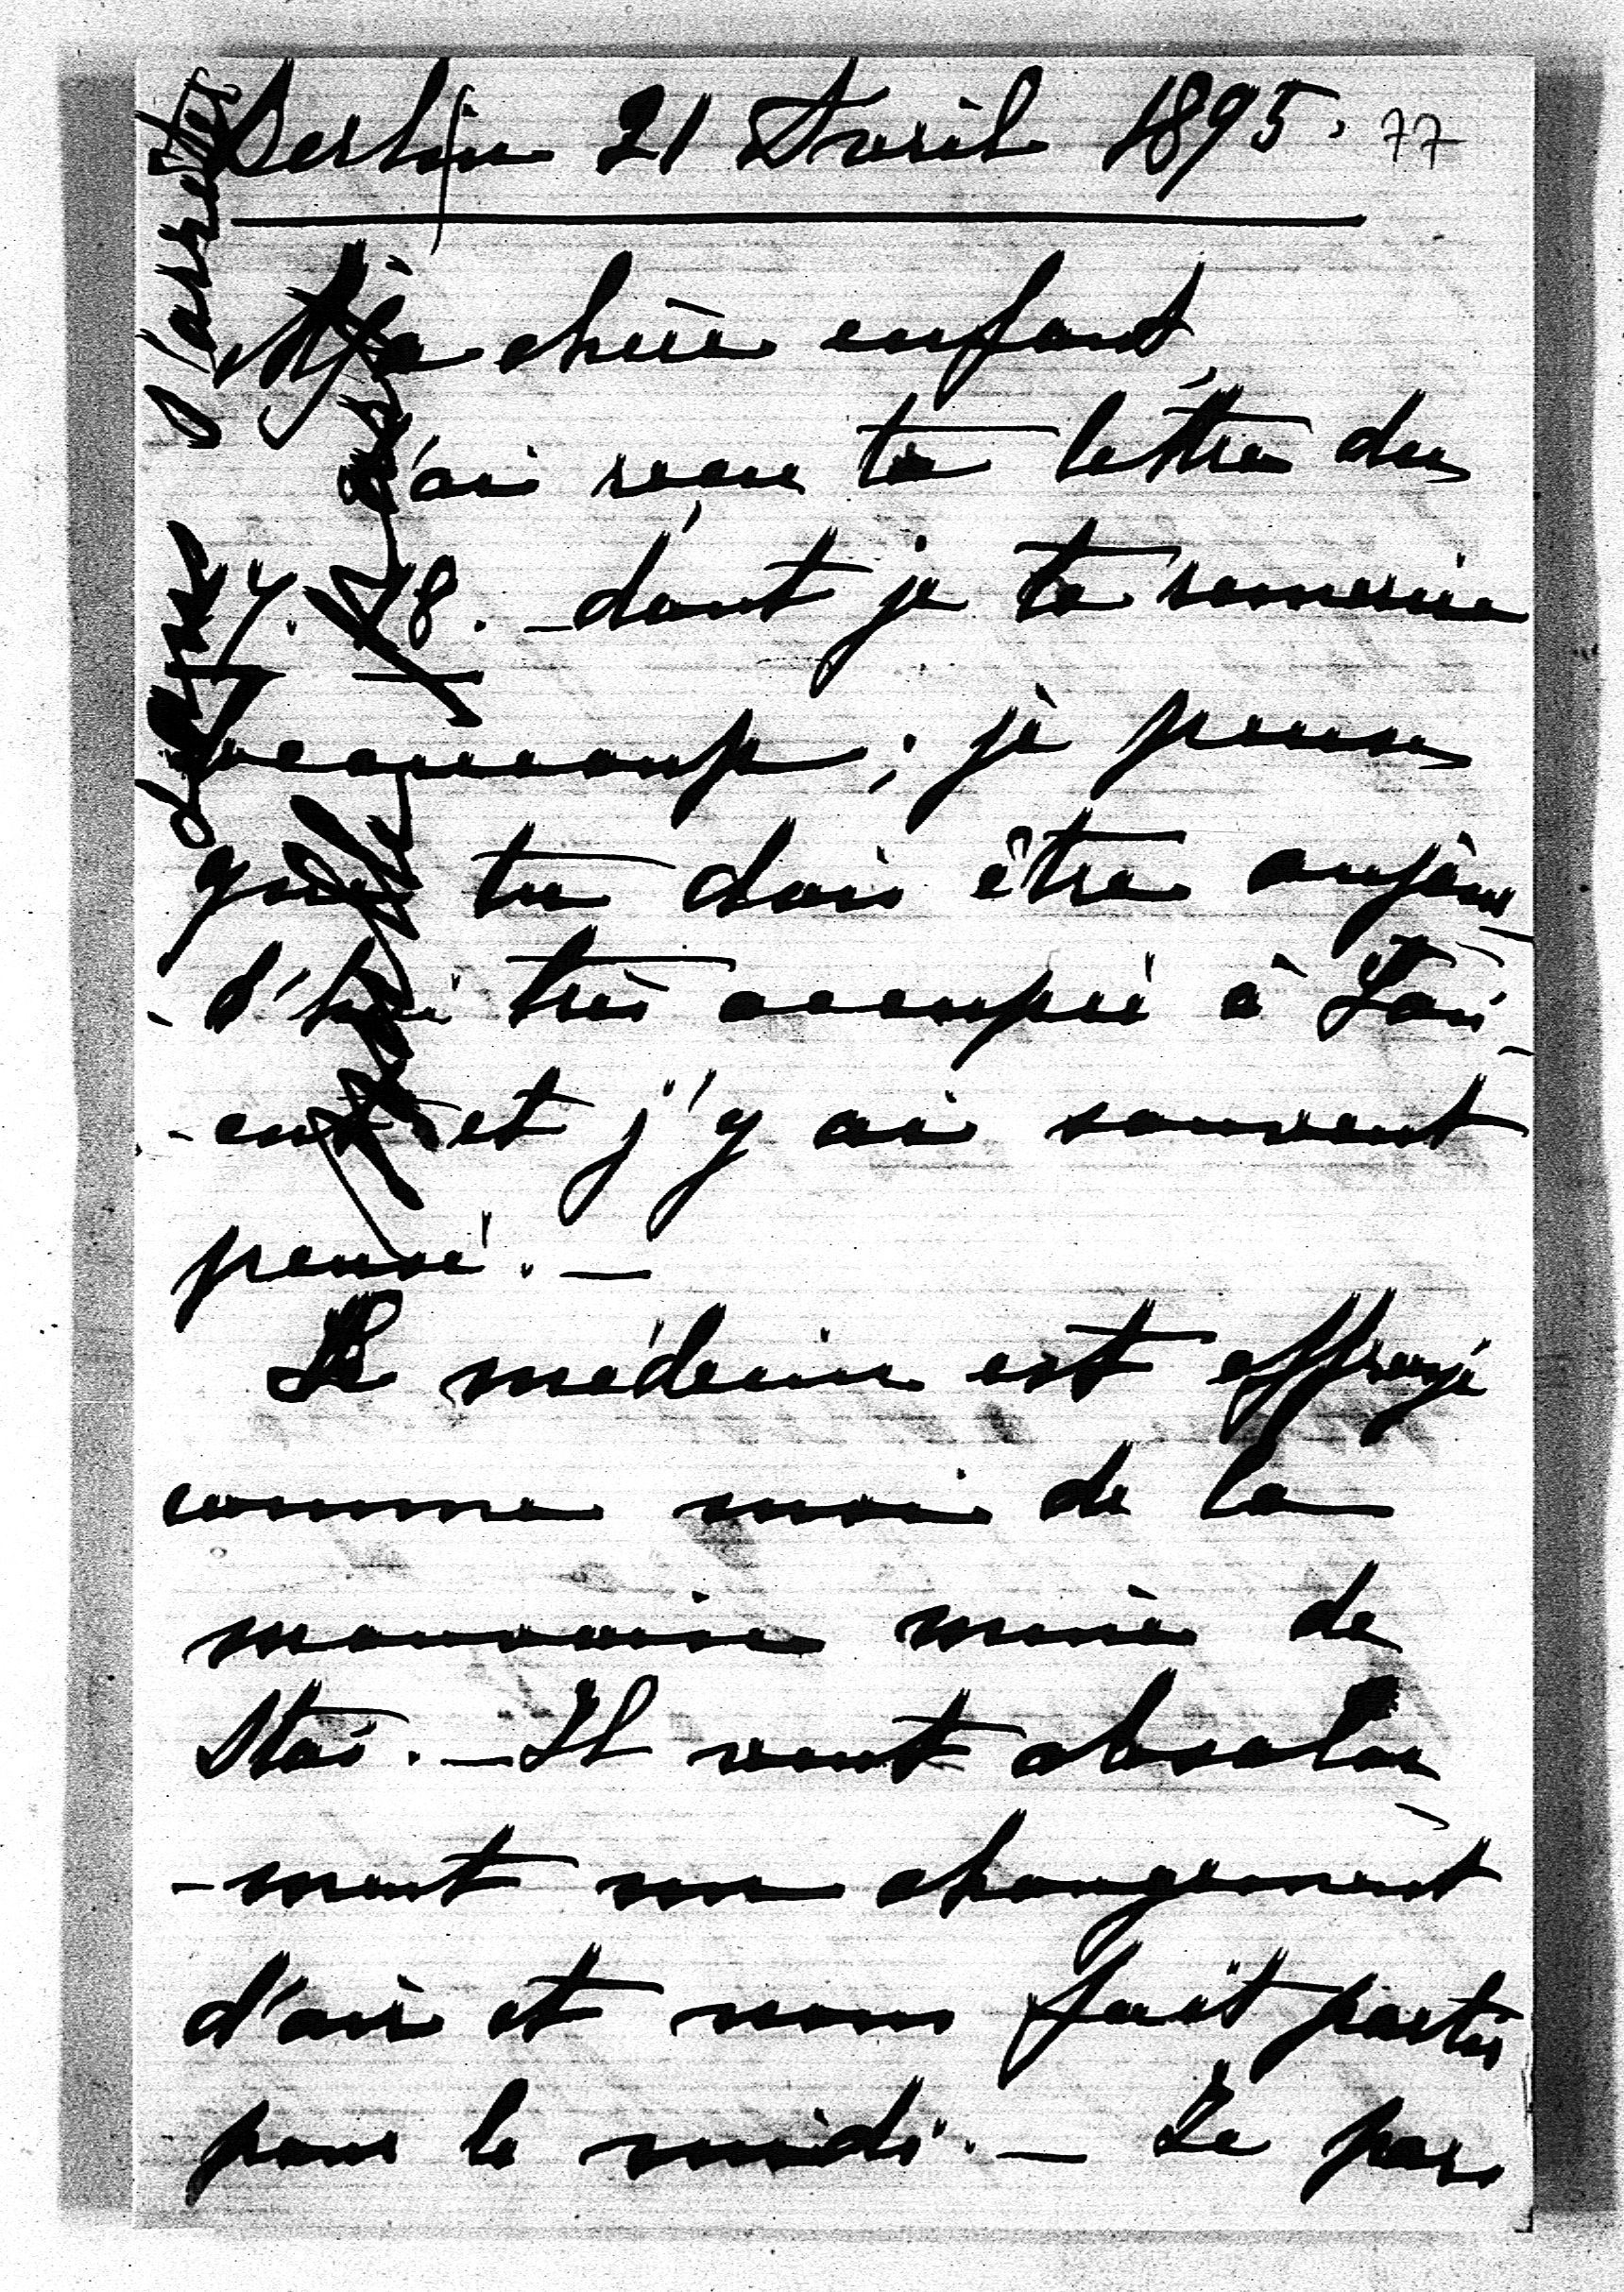 Berlin 21 Avril 1895. 77
Ma chère enfant,
J'ai reçu ta lettre du
4. 18. _ dont je te remercie
beaucoup; je pense
que tu dois être aujour
-d'hui très occupée à
et j'y ai souvent
pensé. _
Le médecin est effrayé
comme moi de la
mauvaise mine de
Stas. _ Il veut absolu
-ment un changement
d'air et nous fait partir
pour le midi. _ Je pars
s'arrêter